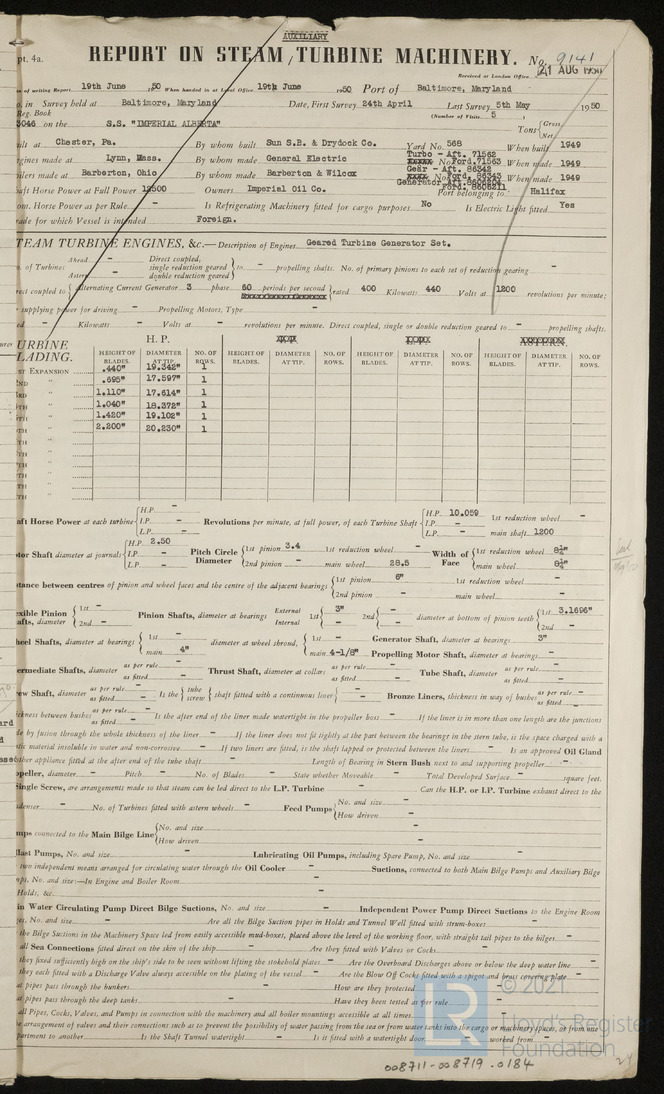 AUXILIARY
pt. 4a.
REPORT ON STEAM / TURBINE MACHINERY. No. 9141
Received at London Office 21 AUG 1950
of writing Report 19th June 1950 When handed in at Local Office 19th June 1950 Port of Baltimore, Maryland
Survey held at Baltimore, Maryland Date, First Survey 24th April Last Survey 5th May 1950
Reg. Book (Number of Visits 5 )
3046 on the S.S. "IMPERIAL ALBERTA" Tons Gross Net
ilt at Chester, Pa. By whom built Sun S.B. & Drydock Co. Yard No. 568 When built 1949
gines made at Lynn, Mass. By whom made General Electric Turbo - Aft. 71562 Ford. 71563 When made 1949
ilers made at Barberton, Ohio By whom made Barberton & Wilcox Gear - Aft. 86342 Ford. 86343 When made 1949
haft Horse Power at Full Power 12500 Owners Imperial Oil Co. Generator Aft. Ford. 8606211 Port belonging to Halifax
om. Horse Power as per Rule - Is Refrigerating Machinery fitted for cargo purposes No Is Electric Light fitted Yes
rade for which Vessel is intended Foreign.
TEAM TURBINE ENGINES, &c.— Description of Engines Geared Turbine Generator Set.
o. of Turbines Ahead - Astern - Direct coupled, single reduction geared double reduction geared } to - propelling shafts. No. of primary pinions to each set of reduction gearing -
rect coupled to { Alternating Current Generator 3 phase 60 periods per second } rated 400 Kilowatts 440 Volts at 1200 revolutions per minute;
supplying power for driving - Propelling Motors, Type -
ed - Kilowatts - Volts at - revolutions per minute. Direct coupled, single or double reduction geared to - propelling shafts.
URBINE LADING. H. P.
HEIGHT OF BLADES. DIAMETER AT TIP. NO. OF ROWS. HEIGHT OF BLADES. DIAMETER AT TIP. NO. OF ROWS. HEIGHT OF BLADES. DIAMETER AT TIP. NO. OF ROWS. HEIGHT OF BLADES. DIAMETER AT TIP. NO. OF ROWS.
ST EXPANSION .440" 19.342" 1
ND " .695" 17.597" 1
RD " 1.110" 17.614" 1
TH " 1.040" 18.372" 1
TH " 1.420" 19.102" 1
TH " 2.200" 20.230" 1
TH "
TH "
TH "
TH "
TH "
TH "
aft Horse Power at each turbine { H.P. - I.P. - L.P. - Revolutions per minute, at full power, of each Turbine Shaft { H.P. 10.059 I.P. - L.P. - 1st reduction wheel - main shaft 1200
tor Shaft diameter at journals { H.P. 2.50 I.P. - L.P. - Pitch Circle Diameter { 1st pinion 3.4 2nd pinion - 1st reduction wheel - main wheel 28.5 Width of Face { 1st reduction wheel 8½" main wheel 8½"
stance between centres of pinion and wheel faces and the centre of the adjacent bearings { 1st pinion 6" 2nd pinion - 1st reduction wheel - main wheel -
exible Pinion afts, diameter { 1st - 2nd - Pinion Shafts, diameter at bearings External Internal 1st 3" 2nd - diameter at bottom of pinion teeth { 1st 3.1696" 2nd -
heel Shafts, diameter at bearings { 1st - main 4" diameter at wheel shroud, { 1st - main 4-1/8" Generator Shaft, diameter at bearings 3" Propelling Motor Shaft, diameter at bearings -
ermediate Shafts, diameter as per rule - as fitted - Thrust Shaft, diameter at collars as per rule - as fitted - Tube Shaft, diameter as per rule - as fitted -
ew Shaft, diameter as per rule - as fitted - Is the { tube screw } shaft fitted with a continuous liner { - Bronze Liners, thickness in way of bushes as per rule - as fitted -
ickness between bushes as per rule - as fitted - Is the after end of the liner made watertight in the propeller boss - If the liner is in more than one length are the junctions
de by fusion through the whole thickness of the liner - If the liner does not fit tightly at the part between the bearings in the stern tube, is the space charged with a
tic material insoluble in water and non-corrosive - If two liners are fitted, is the shaft lapped or protected between the liners - Is an approved Oil Gland
other appliance fitted at the after end of the tube shaft - Length of Bearing in Stern Bush next to and supporting propeller -
opeller, diameter - Pitch - No. of Blades - State whether Moveable - Total Developed Surface - square feet.
Single Screw, are arrangements made so that steam can be led direct to the L.P. Turbine - Can the H.P. or I.P. Turbine exhaust direct to the
denser - No. of Turbines fitted with astern wheels - Feed Pumps { No. and size - How driven -
mps connected to the Main Bilge Line { No. and size - How driven -
llast Pumps, No. and size - Lubricating Oil Pumps, including Spare Pump, No. and size -
two independent means arranged for circulating water through the Oil Cooler - Suctions, connected to both Main Bilge Pumps and Auxiliary Bilge
mps, No. and size:—In Engine and Boiler Room -
Holds, &c. -
in Water Circulating Pump Direct Bilge Suctions, No. and size - Independent Power Pump Direct Suctions to the Engine Room
ges, No. and size - Are all the Bilge Suction pipes in Holds and Tunnel Well fitted with strum-boxes -
the Bilge Suctions in the Machinery Space led from easily accessible mud-boxes, placed above the level of the working floor, with straight tail pipes to the bilges -
all Sea Connections fitted direct on the skin of the ship - Are they fitted with Valves or Cocks -
they fixed sufficiently high on the ship's side to be seen without lifting the stokehold plates - Are the Overboard Discharges above or below the deep water line -
they each fitted with a Discharge Valve always accessible on the plating of the vessel - Are the Blow Off Cocks fitted with a spigot and brass covering plate -
at pipes pass through the bunkers - How are they protected -
at pipes pass through the deep tanks - Have they been tested as per rule -
all Pipes, Cocks, Valves, and Pumps in connection with the machinery and all boiler mountings accessible at all times -
he arrangement of valves and their connections such as to prevent the possibility of water passing from the sea or from water tanks into the cargo or machinery spaces, or from one
partment to another - Is the Shaft Tunnel watertight - Is it fitted with a watertight door - worked from -
008711-008719-0184
LR © 2021
Lloyd's Register
Foundation